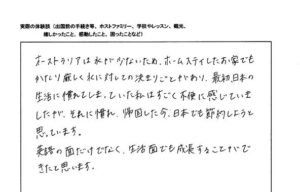 実際の体験談（出国前の手続き等、ホストファミリー、学校やレッスン、観光、
嬉しかったこと、感動したこと、困ったことなど）
オーストラリアは水が少ないため、ホームステイしたお家でも
かなり厳しく水に対しての決まりごとがあり、最初、日本の
生活に慣れてしまっていた私はすごく不便に感じていま
したが、それに慣れ、帰国したら、日本でも節約しようと
思っています。
英語の面だけでなく、生活面でも成長することが
できたと思います。